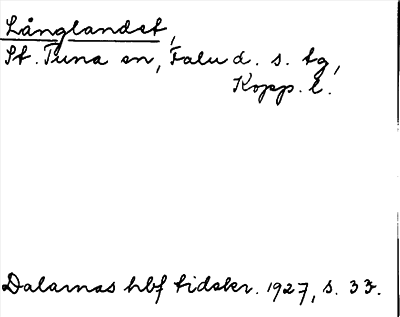 Långlandet,
St. Tuna sn, Falu d. s. tg,
Kopp. l.
Dalarnas hbf tidskr. 1927, s. 33.